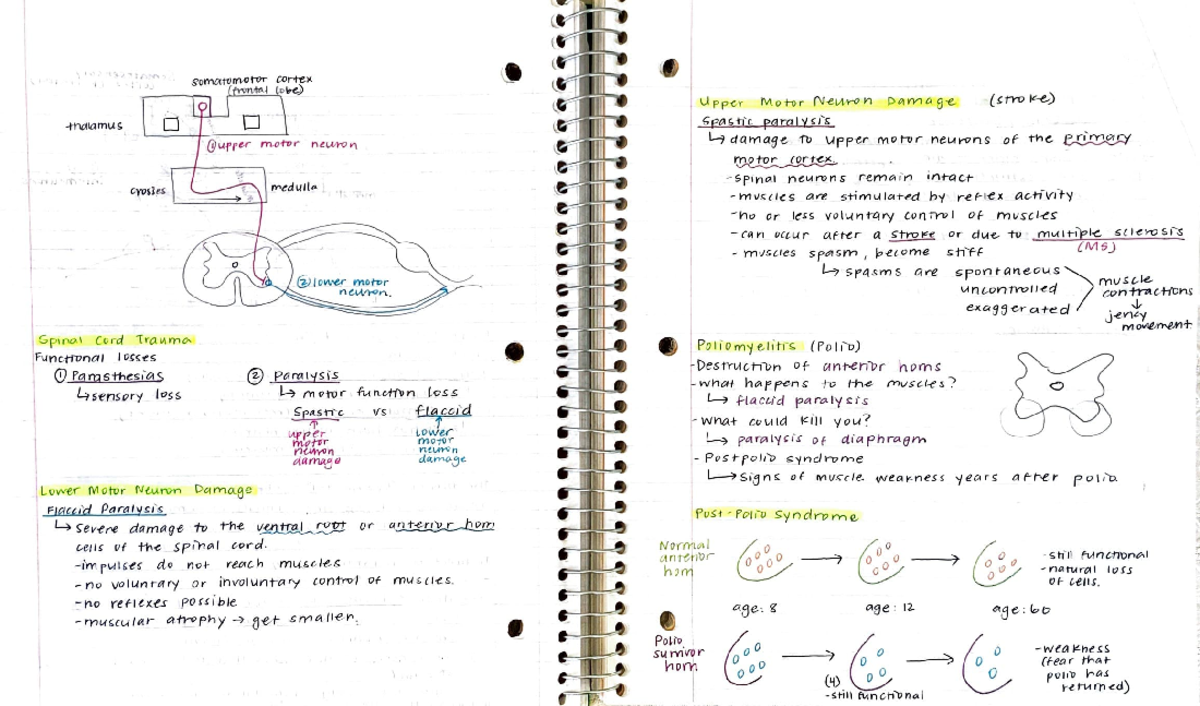 somatomotor cortex
(frontal lobe)
thalamus
①upper motor neuron
crosses
medulla
②lower motor
neuron.
Spinal Cord Trauma
Functional losses
① Parasthesias
↳sensory loss
② Paralysis
↳ motor function loss
Spastic vs flaccid
↑
upper
motor
neuron
damage
↑
lower
motor
neuron
damage
Lower Motor Neuron Damage
Flaccid Paralysis
↳ Severe damage to the ventral root or anterior horn
cells of the spinal cord.
-impulses do not reach muscles
-no voluntary or involuntary control of muscles.
-no reflexes possible
-muscular atrophy → get smaller.
Upper Motor Neuron Damage (stroke)
Spastic paralysis
↳ damage to upper motor neurons of the primary
motor cortex.
-spinal neurons remain intact
-muscles are stimulated by reflex activity
-no or less voluntary control of muscles
-can occur after a stroke or due to multiple sclerosis
(MS)
- muscles spasm, become stiff
↳ spasms are spontaneous
uncontrolled
exaggerated
muscle
contractions
↓
jerky
movement
Poliomyelitis (Polio)
-Destruction of anterior horns
-what happens to the muscles?
↳ flaccid paralysis
-What could kill you?
↳ paralysis of diaphragm
- Postpolio syndrome
↳Signs of muscle weakness years after polio.
Post-Polio Syndrome
Normal
anterior
horn
-still functional
-natural loss
of cells.
age: 8 age: 12 age: 60
Polio
survivor
horn
(4)
-still functional
-weakness
(fear that
polio has
returned)